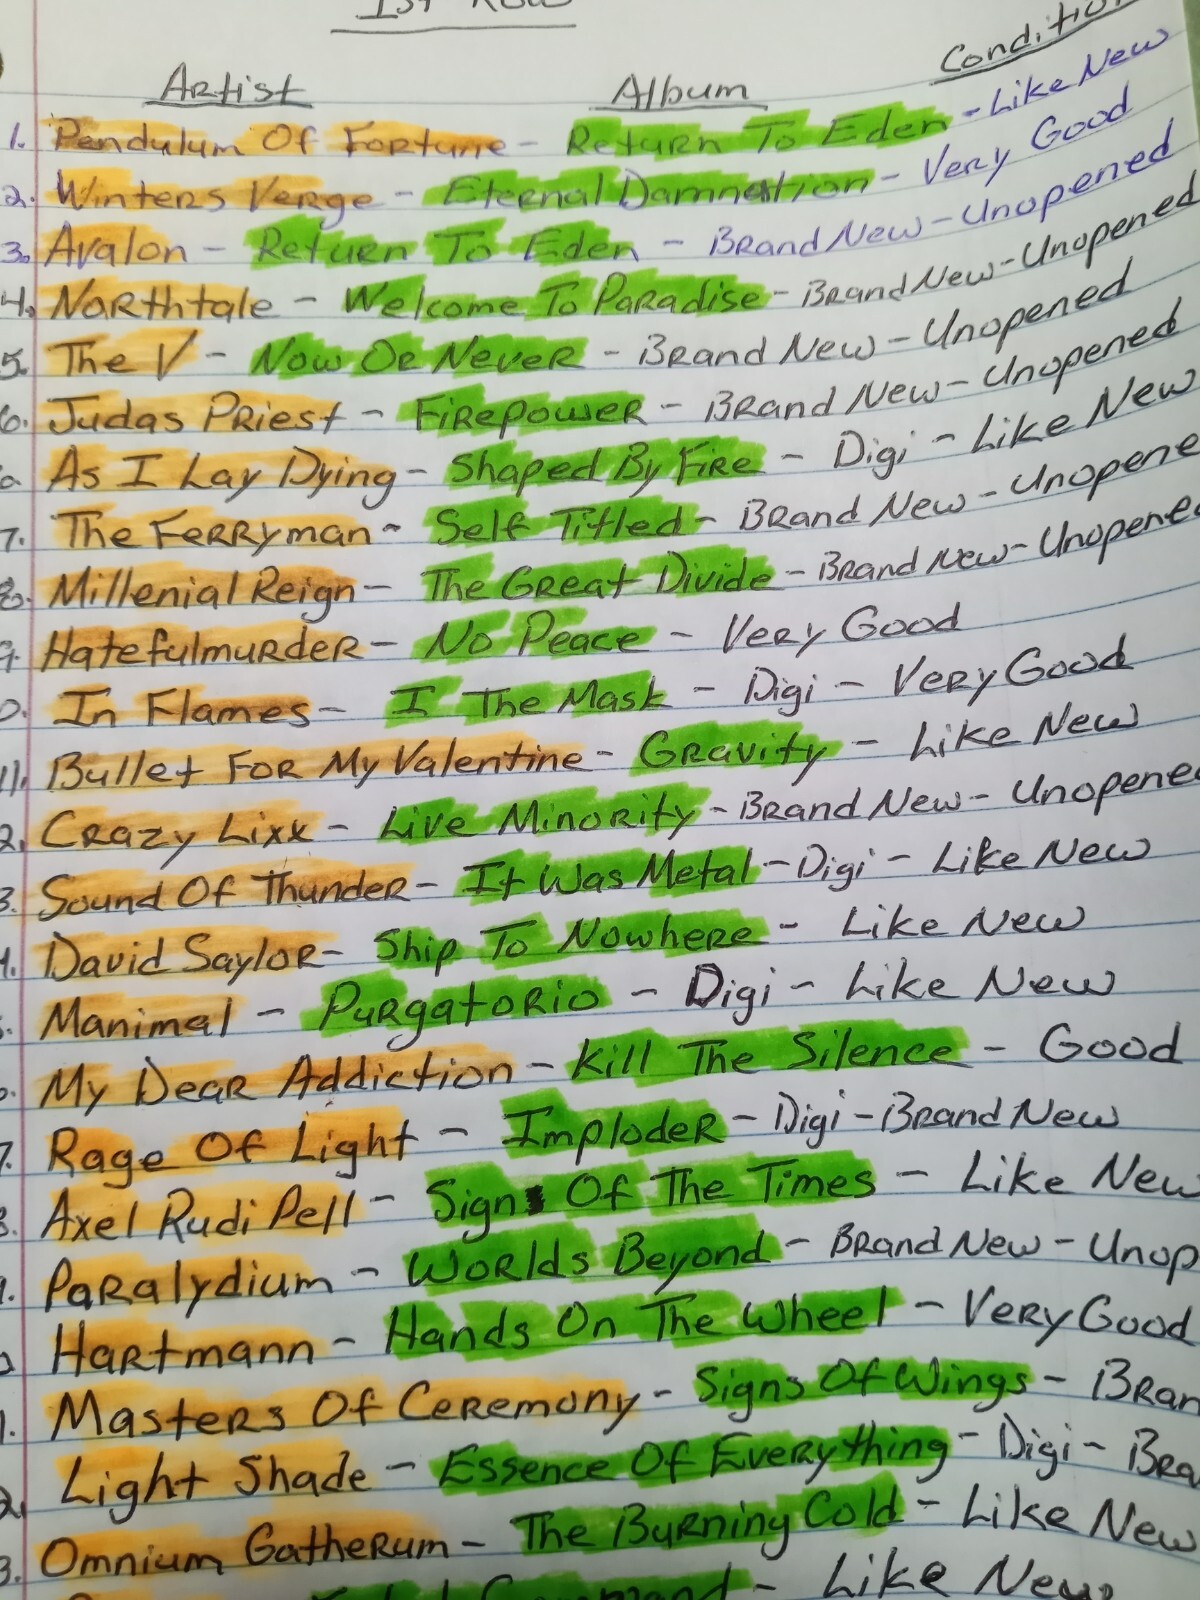 1st Row
Artist Album Condition
1. Pendulum Of Fortune - Return To Eden - Like New
2. Winters Verge - Eternal Damnation - Very Good
3. Avalon - Return To Eden - Brand New - Unopened
4. Northtale - Welcome To Paradise - Brand New - Unopened
5. The V - Now Or Never - Brand New - Unopened
6. Judas Priest - Firepower - Brand New - Unopened
a. As I Lay Dying - Shaped By Fire - Digi - Like New
7. The Ferryman - Self Titled - Brand New - Unopene
8. Millenial Reign - The Great Divide - Brand New - Unopene
9. Hatefulmurder - No Peace - Very Good
0. In Flames - I The Mask - Digi - Very Good
11. Bullet For My Valentine - Gravity - Like New
2. Crazy Lixx - Live Minority - Brand New - Unopened
3. Sound Of Thunder - It Was Metal - Digi - Like New
4. David Saylor - Ship To Nowhere - Like New
Manimal - Purgatorio - Digi - Like New
My Dear Addiction - Kill The Silence - Good
7. Rage Of Light - Imploder - Digi - Brand New
8. Axel Rudi Pell - Sign Of The Times - Like New
9. Paralydium - Worlds Beyond - Brand New - Unop
Hartmann - Hands On The Wheel - Very Good
1. Masters Of Ceremony - Signs Of Wings - Bran
2. Light Shade - Essence Of Everything - Digi - Bra
3. Omnium Gatherum - The Burning Cold - Like New
Command - Like New